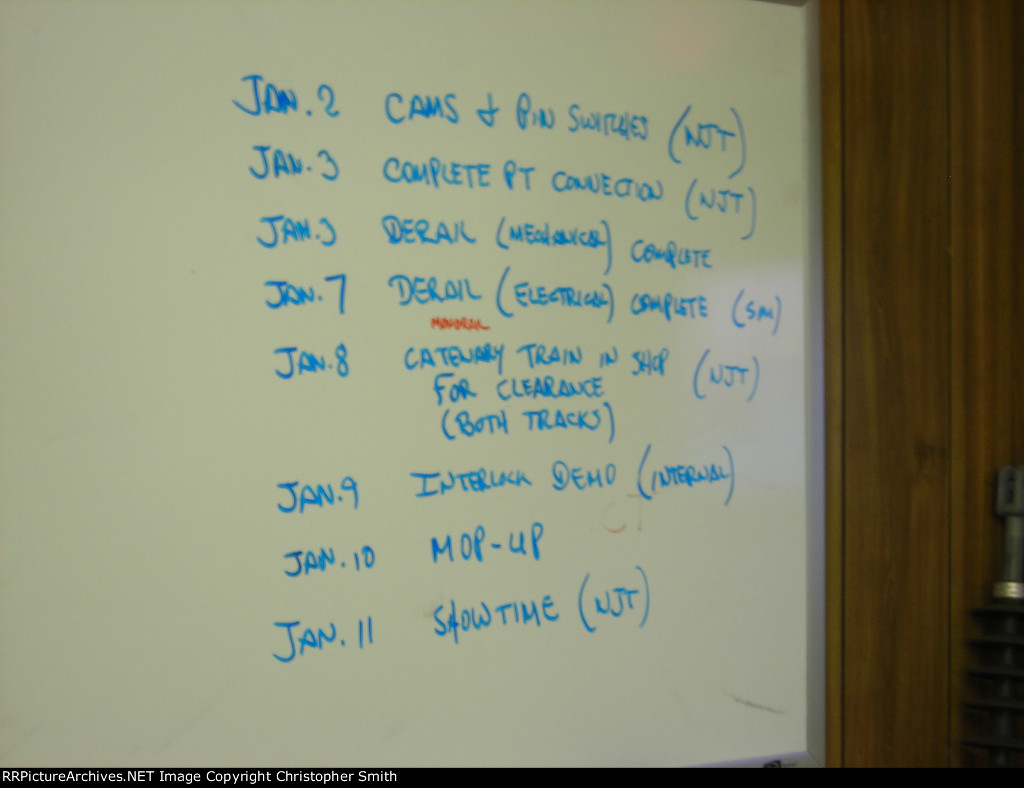 JAN. 2 CAMS & PIN SWITCHES (NJT)
JAN. 3 COMPLETE PT CONNECTION (NJT)
JAN. 3 DERAIL (MECHANICAL) COMPLETE
JAN. 7 DERAIL (ELECTRICAL) COMPLETE (SIM)
MONORAIL
JAN. 8 CATENARY TRAIN IN SHOP (NJT)
FOR CLEARANCE
(BOTH TRACKS)
JAN. 9 INTERLOCK DEMO (INTERNAL)
JAN. 10 MOP-UP
JAN. 11 SHOWTIME (NJT)
RRPictureArchives.NET Image Copyright Christopher Smith